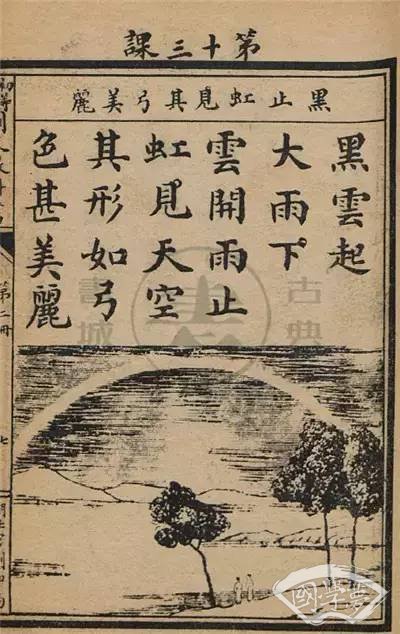 第十三課
黑止虹見其弓美麗
黑雲起
大雨下
雲開雨止
虹見天空
其形如弓
色甚美麗
第二冊
七
古典書城
國學夢